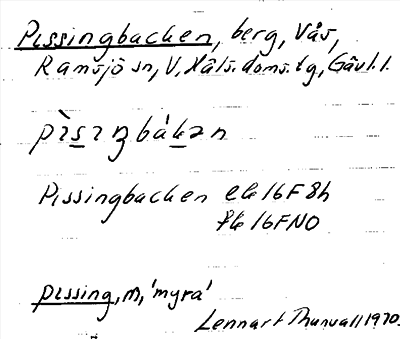 Pissingbacken, berg, Vås,
Ramsjö sn, V. Häls. doms. tg, Gävl. l.
pìsiŋbákən
Pissingbacken ek 16F 8h
fk 16F NO
pissing, m, 'myra'
Lennart Thunvall 1970.